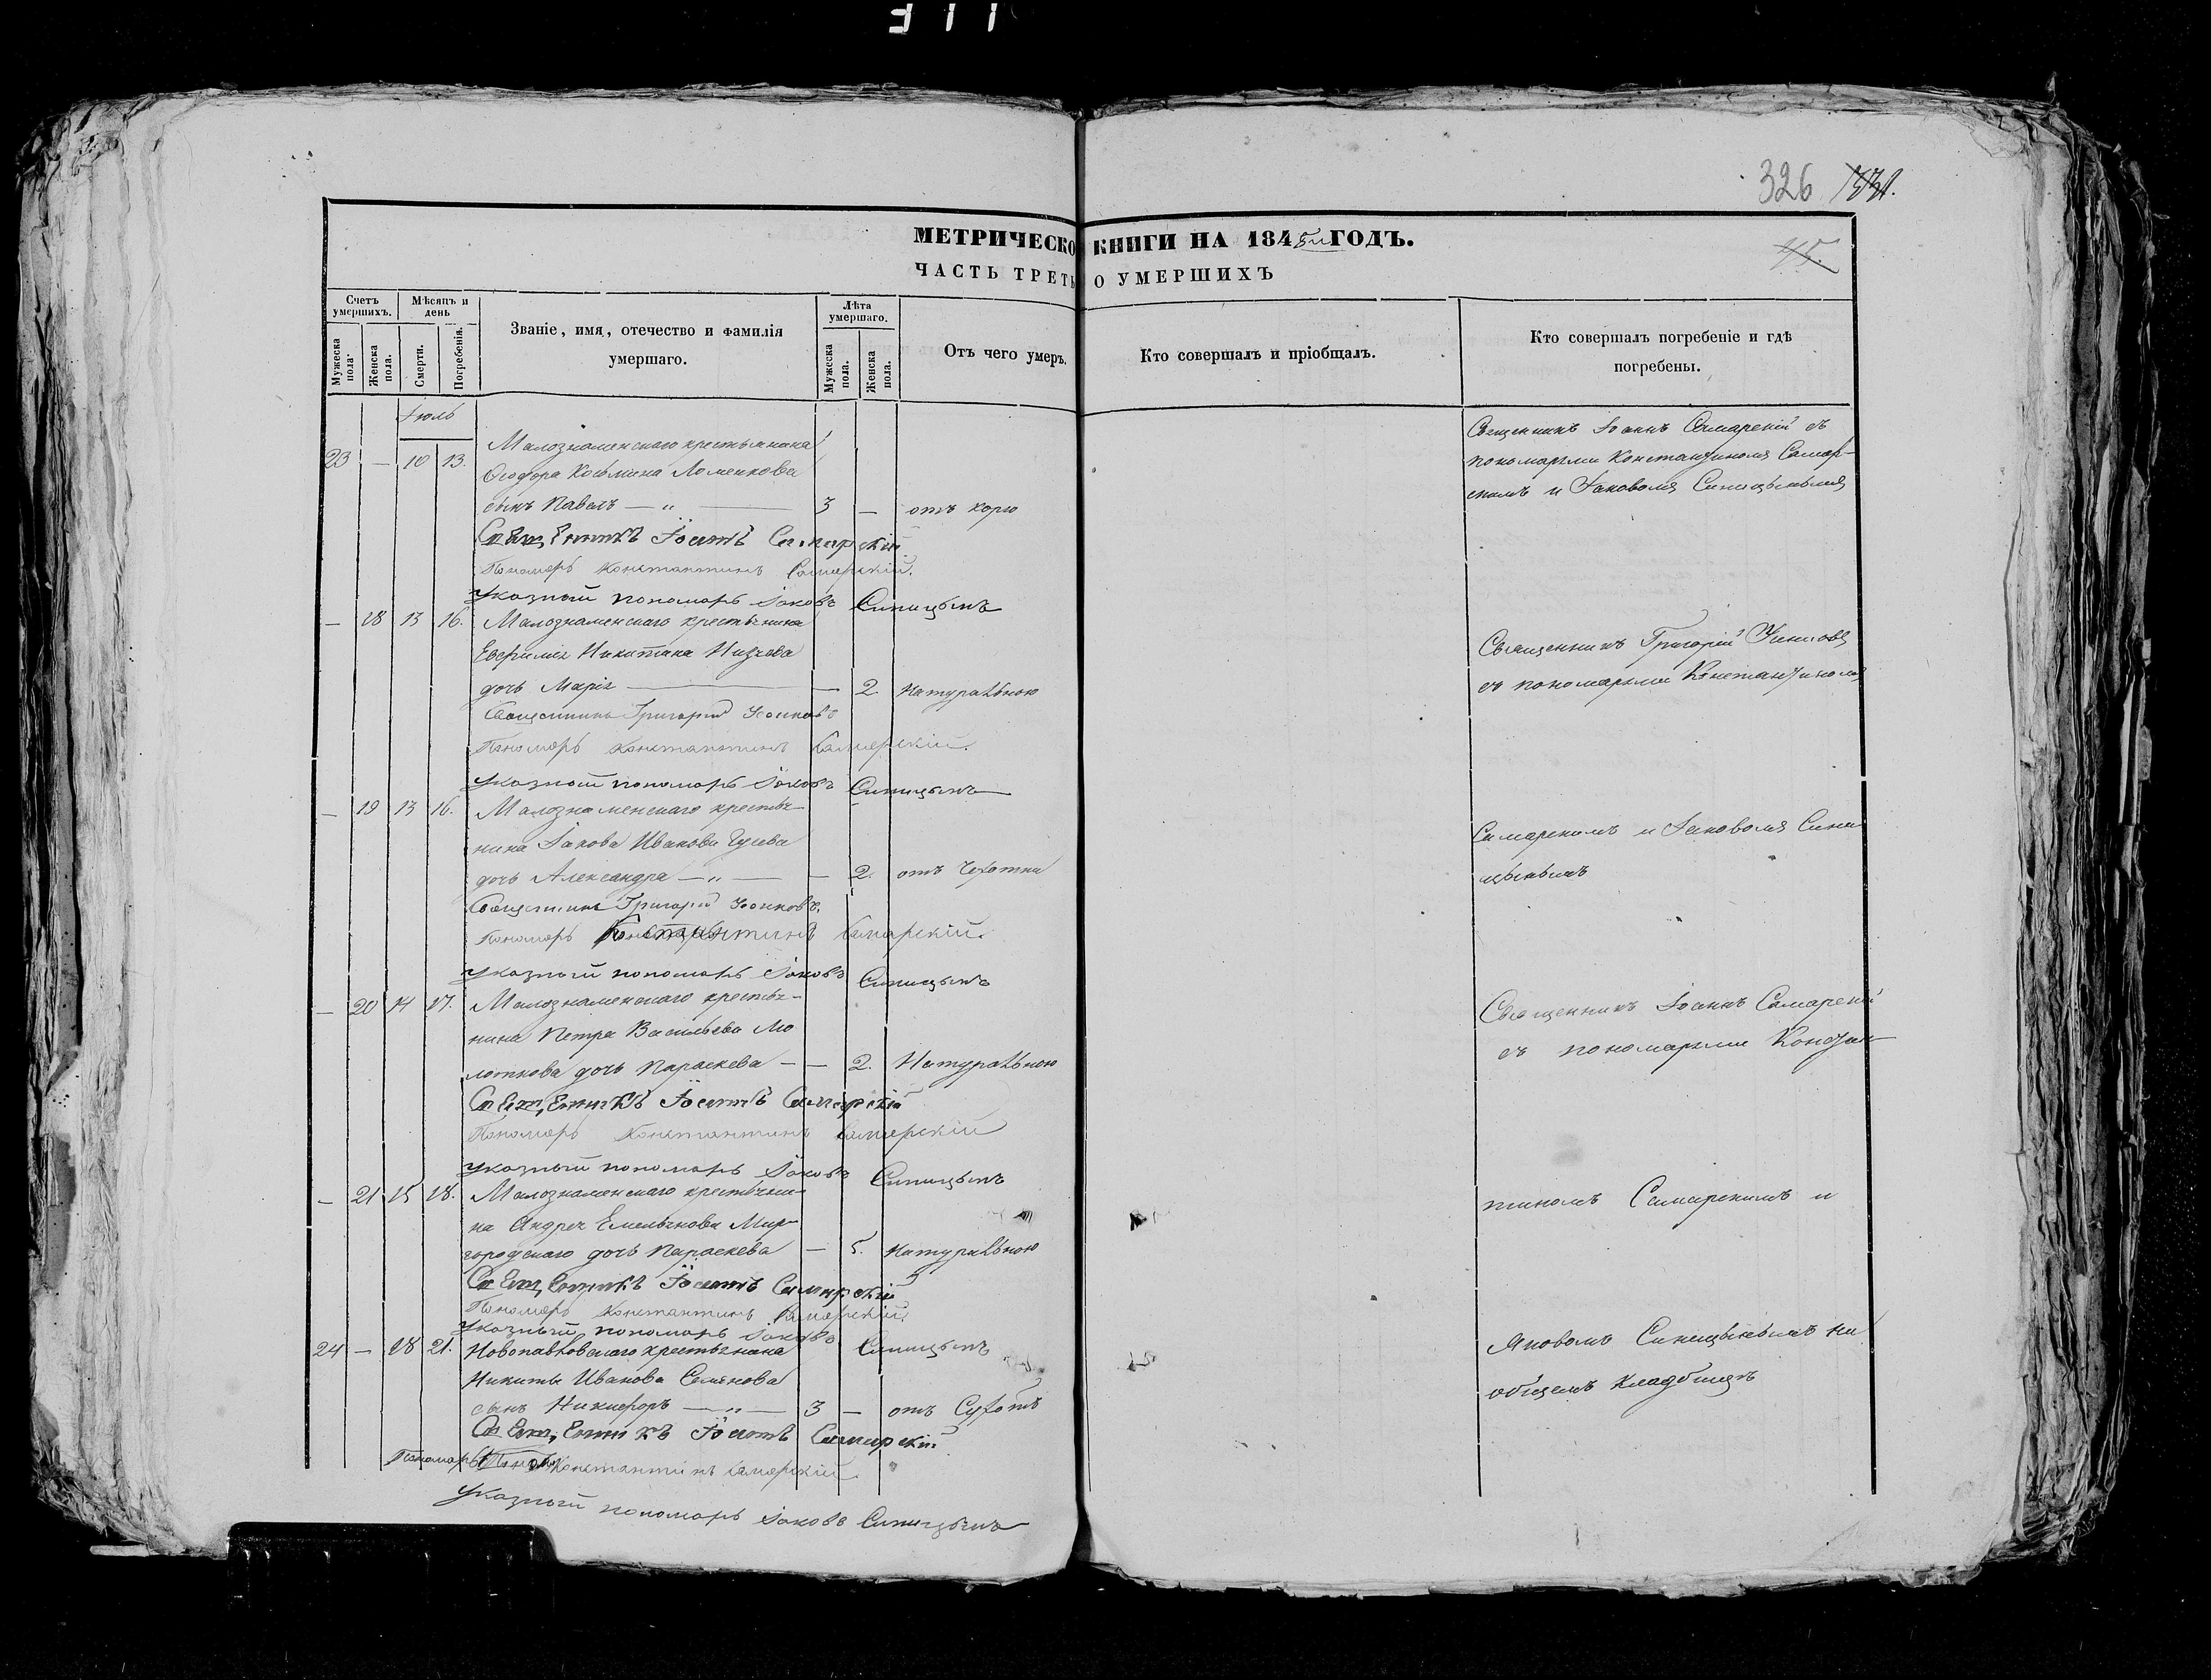 311
326
МЕТРИЧЕСКО КНИГИ НА 1845й ГОДЪ.
45.
ЧАСТЬ ТРЕТЬ О УМЕРШИХЪ
Счетъ умершихъ.
Мѣсяцъ и день
Званіе, имя, отечество и фамилія
умершаго.
Лѣта умершаго.
Отъ чего умеръ.
Кто совершалъ и пріобщалъ.
Кто совершалъ погребеніе и гдѣ
погребены.
Мужеска пола.
Женска пола.
Смерти.
Погребенія.
Мужеска пола.
Женска пола.
Іюль
Малознаменскаго крестьянина
23 — 10 13.
Ѳеодора Косьмина Ломенкова
сынъ Павелъ — „ — 3 — отъ корю
Священникъ Іоаннъ Самарскій
Пономарь Константинъ Самарскій.
Указный пономарь Іаковъ Синицынъ
— 18 13 16. Малознаменскаго крестьянина
Евфимія Никитина
дочь Марія — — 2. Натуральною
Священникъ Григорій
Пономарь Константинъ Самарскій.
Указный пономарь Іаковъ Синицынъ
— 19 13 16. Малознаменскаго крестья-
нина Іакова Иванова Гусева
дочь Александра — „ — — 2. отъ Чехотки
Священникъ Григорій
Пономарь Константинъ Самарскій.
Указный пономарь Іаковъ Синицынъ
— 20 14 17. Малознаменскаго крестья-
нина Петра Васильева Мо
лоткова дочь Параскева — — 2. Натуральною
Священникъ Іоаннъ Самарскій
Пономарь Константинъ Самарскій
Указный пономарь Іаковъ Синицынъ
— 21 15 18. Малознаменскаго крестьяни-
на Андрея Емельянова Мир-
городскаго дочь Параскева — 5. Натуральною
Священникъ Іоаннъ Самарскій
Пономарь Константинъ Самарскій.
Указный пономарь Іаковъ Синицынъ
24 — 18 21. Новопавловскаго крестьянина
Никиты Иванова Семенова
сынъ Никифоръ — „ — 3 — отъ Сухотъ
Священникъ Іоаннъ Самарскій
Пономарь Константинъ Самарскій.
Указный пономарь Іаковъ Синицынъ
Священникъ Іоаннъ Самарскій съ
пономарями Константиномъ Самар-
скимъ и Іаковомъ Синицынымъ
Священникъ Григорій
съ пономарями Константиномъ
Самарскимъ и Іаковомъ Сини
цынымъ
Священникъ Іоаннъ Самарскій
съ пономарями Констан-
тиномъ Самарскимъ и
Яковомъ Синицынымъ на
общемъ кладбищѣ